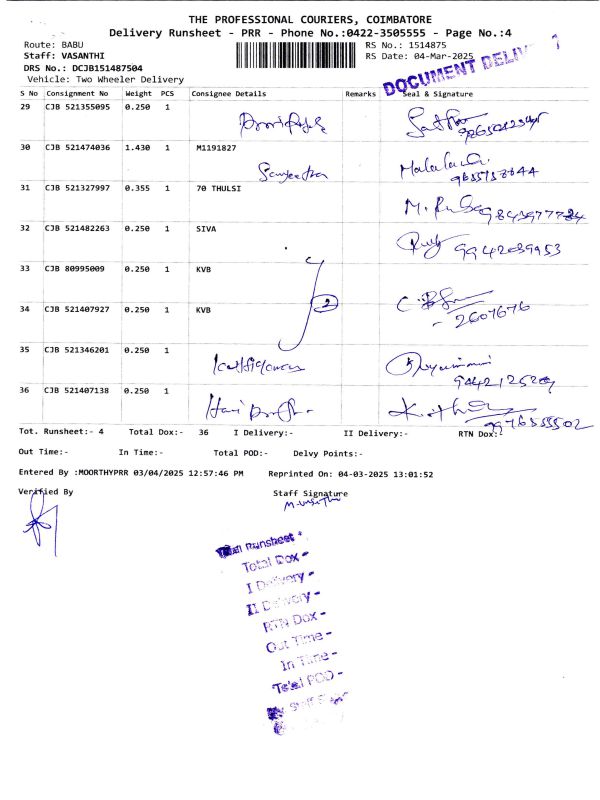 THE PROFESSIONAL COURIERS, COIMBATORE
Delivery Runsheet - PRR - Phone No.:0422-3505555 - Page No.:4
Route: BABU
RS No.: 1514875
Staff: VASANTHI
RS Date: 04-Mar-2025
DRS No.: DCJB151487504
Vehicle: Two Wheeler Delivery
DOCUMENT DELIV
S No Consignment No Weight PCS Consignee Details Remarks Seal & Signature
29 CJB 521355095 0.250 1
30 CJB 521474036 1.430 1 M1191827
Sanjeetha
31 CJB 521327997 0.355 1 70 THULSI
32 CJB 521482263 0.250 1 SIVA
9942039953
33 CJB 80995009 0.250 1 KVB
2
34 CJB 521407927 0.250 1 KVB
- 2607676
35 CJB 521346201 0.250 1
36 CJB 521407138 0.250 1
9976555502
Tot. Runsheet:- 4 Total Dox:- 36 I Delivery:- II Delivery:- RTN Dox:-
Out Time:- In Time:- Total POD:- Delvy Points:-
Entered By :MOORTHYPRR 03/04/2025 12:57:46 PM Reprinted On: 04-03-2025 13:01:52
Verified By Staff Signature
Total Runsheet -
Total Dox -
I Delivery -
II Delivery -
RTN Dox -
Out Time -
In Time -
Total POD -